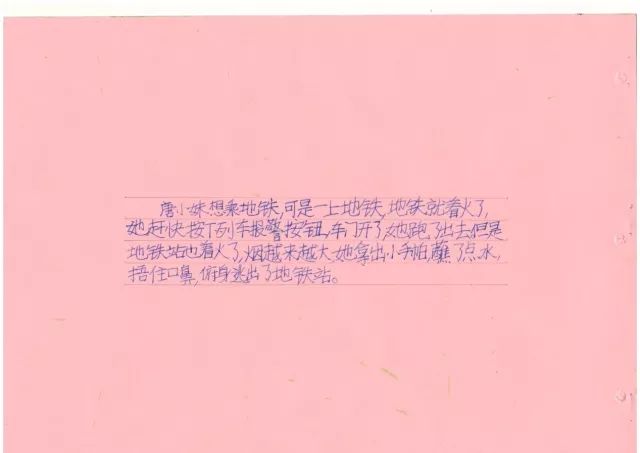 唐小妹想乘地铁,可是一上地铁,地铁就着火了,
她赶快按下列车报警按钮,车门开了,她跑了出去但是
地铁站也着火了,烟越来越大,她拿出小手帕,蘸了点水,
捂住口鼻,俯身逃出了地铁站。